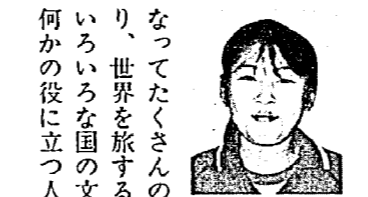 なってたくさんの
り、世界を旅する
いろいろな国の文
何かの役に立つ人